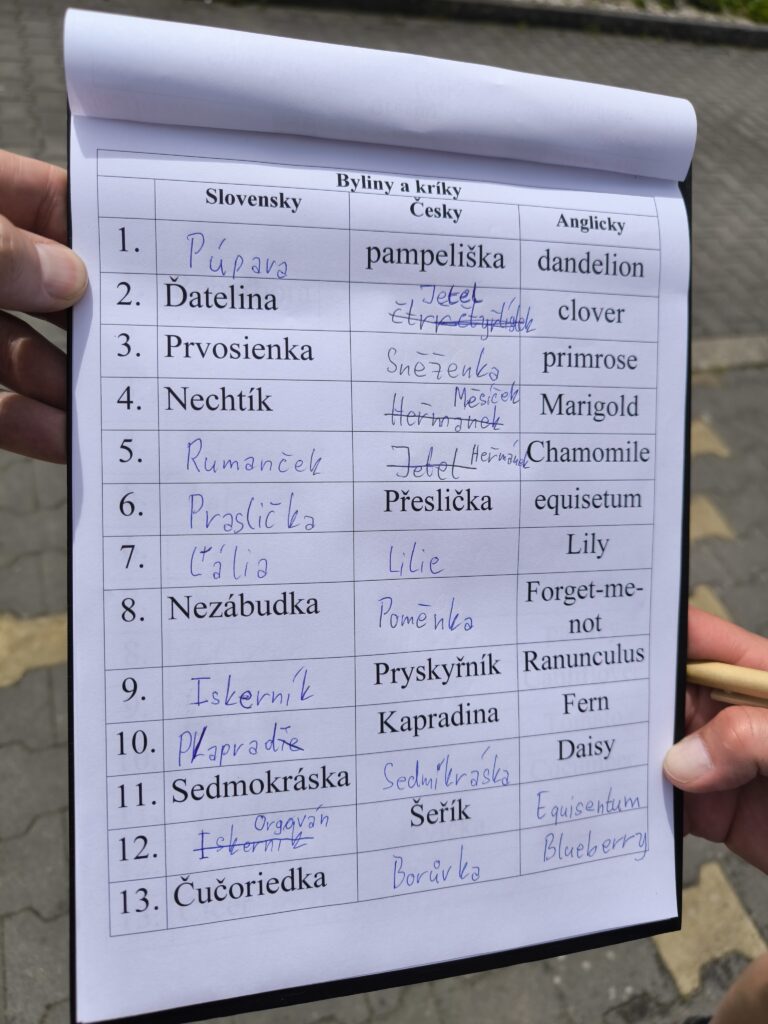 Byliny a kríky
Slovensky Česky Anglicky
1. Púpava pampeliška dandelion
2. Ďatelina Jetel clover
3. Prvosienka Sněženka primrose
4. Nechtík Heřmanek Měsíček Marigold
5. Rumanček Jetel Heřmánek Chamomile
6. Praslička Přeslička equisetum
7. Ľália Lilie Lily
8. Nezábudka Poměnka Forget-me-
not
9. Iskerník Pryskyřník Ranunculus
10. Kapradina Fern
11. Sedmokráska Sedmikráska Daisy
12. Iskerník Orgován Šeřík Equisentum
13. Čučoriedka Borůvka Blueberry